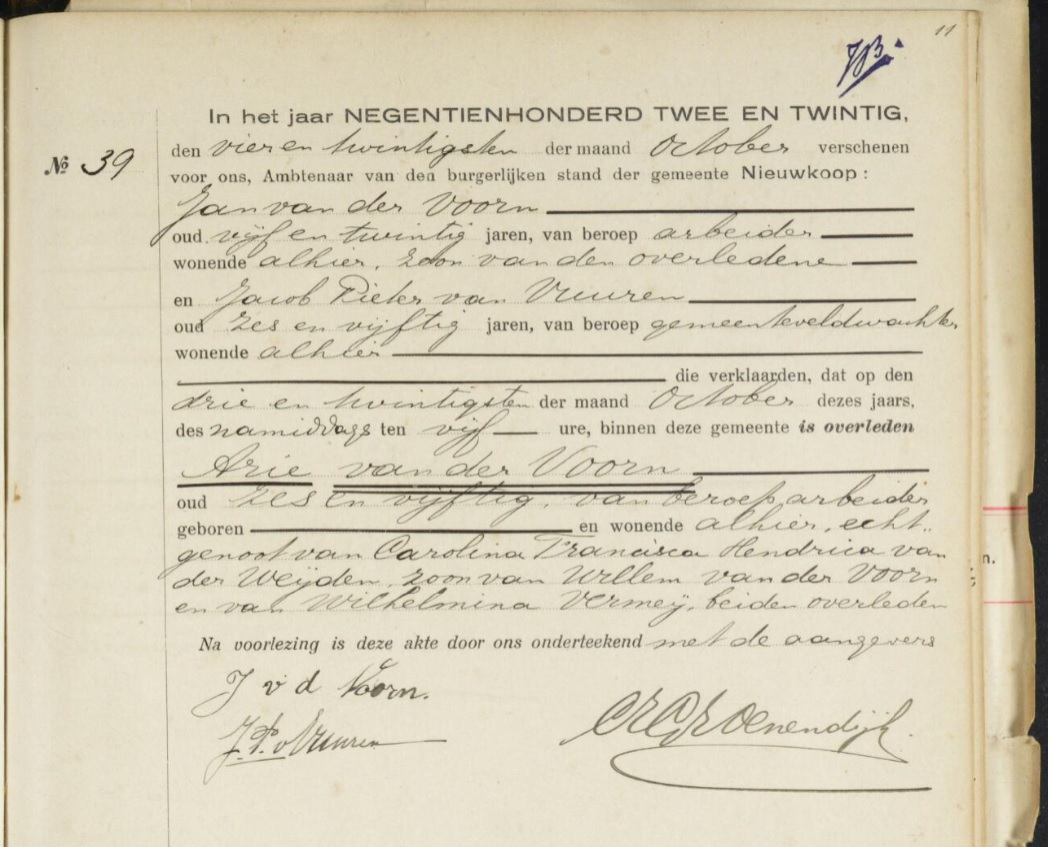 11
In het jaar NEGENTIENHONDERD TWEE EN TWINTIG,
den vier en twintigsten der maand October verschenen
№ 39
voor ons, Ambtenaar van den burgerlijken stand der gemeente Nieuwkoop:
Jan van der Voorn
oud vijf en twintig jaren, van beroep arbeider
wonende alhier, zoon van den overledene
en Jacob Pieter van Vuuren
oud zes en vijftig jaren, van beroep gemeenteveldwachter
wonende alhier
die verklaarden, dat op den
drie en twintigsten der maand October dezes jaars,
des namiddags ten vijf ure, binnen deze gemeente is overleden
Arie van der Voorn
oud zes en vijftig, van beroep arbeider
geboren en wonende alhier, echt-
genoot van Carolina Francisca Hendrica van
der Weijden, zoon van Willem van der Voorn
en van Wilhelmina Vermeij, beiden overleden
Na voorlezing is deze akte door ons onderteekend met de aangevers
J v d Voorn.
J. P. v Vuuren
n.